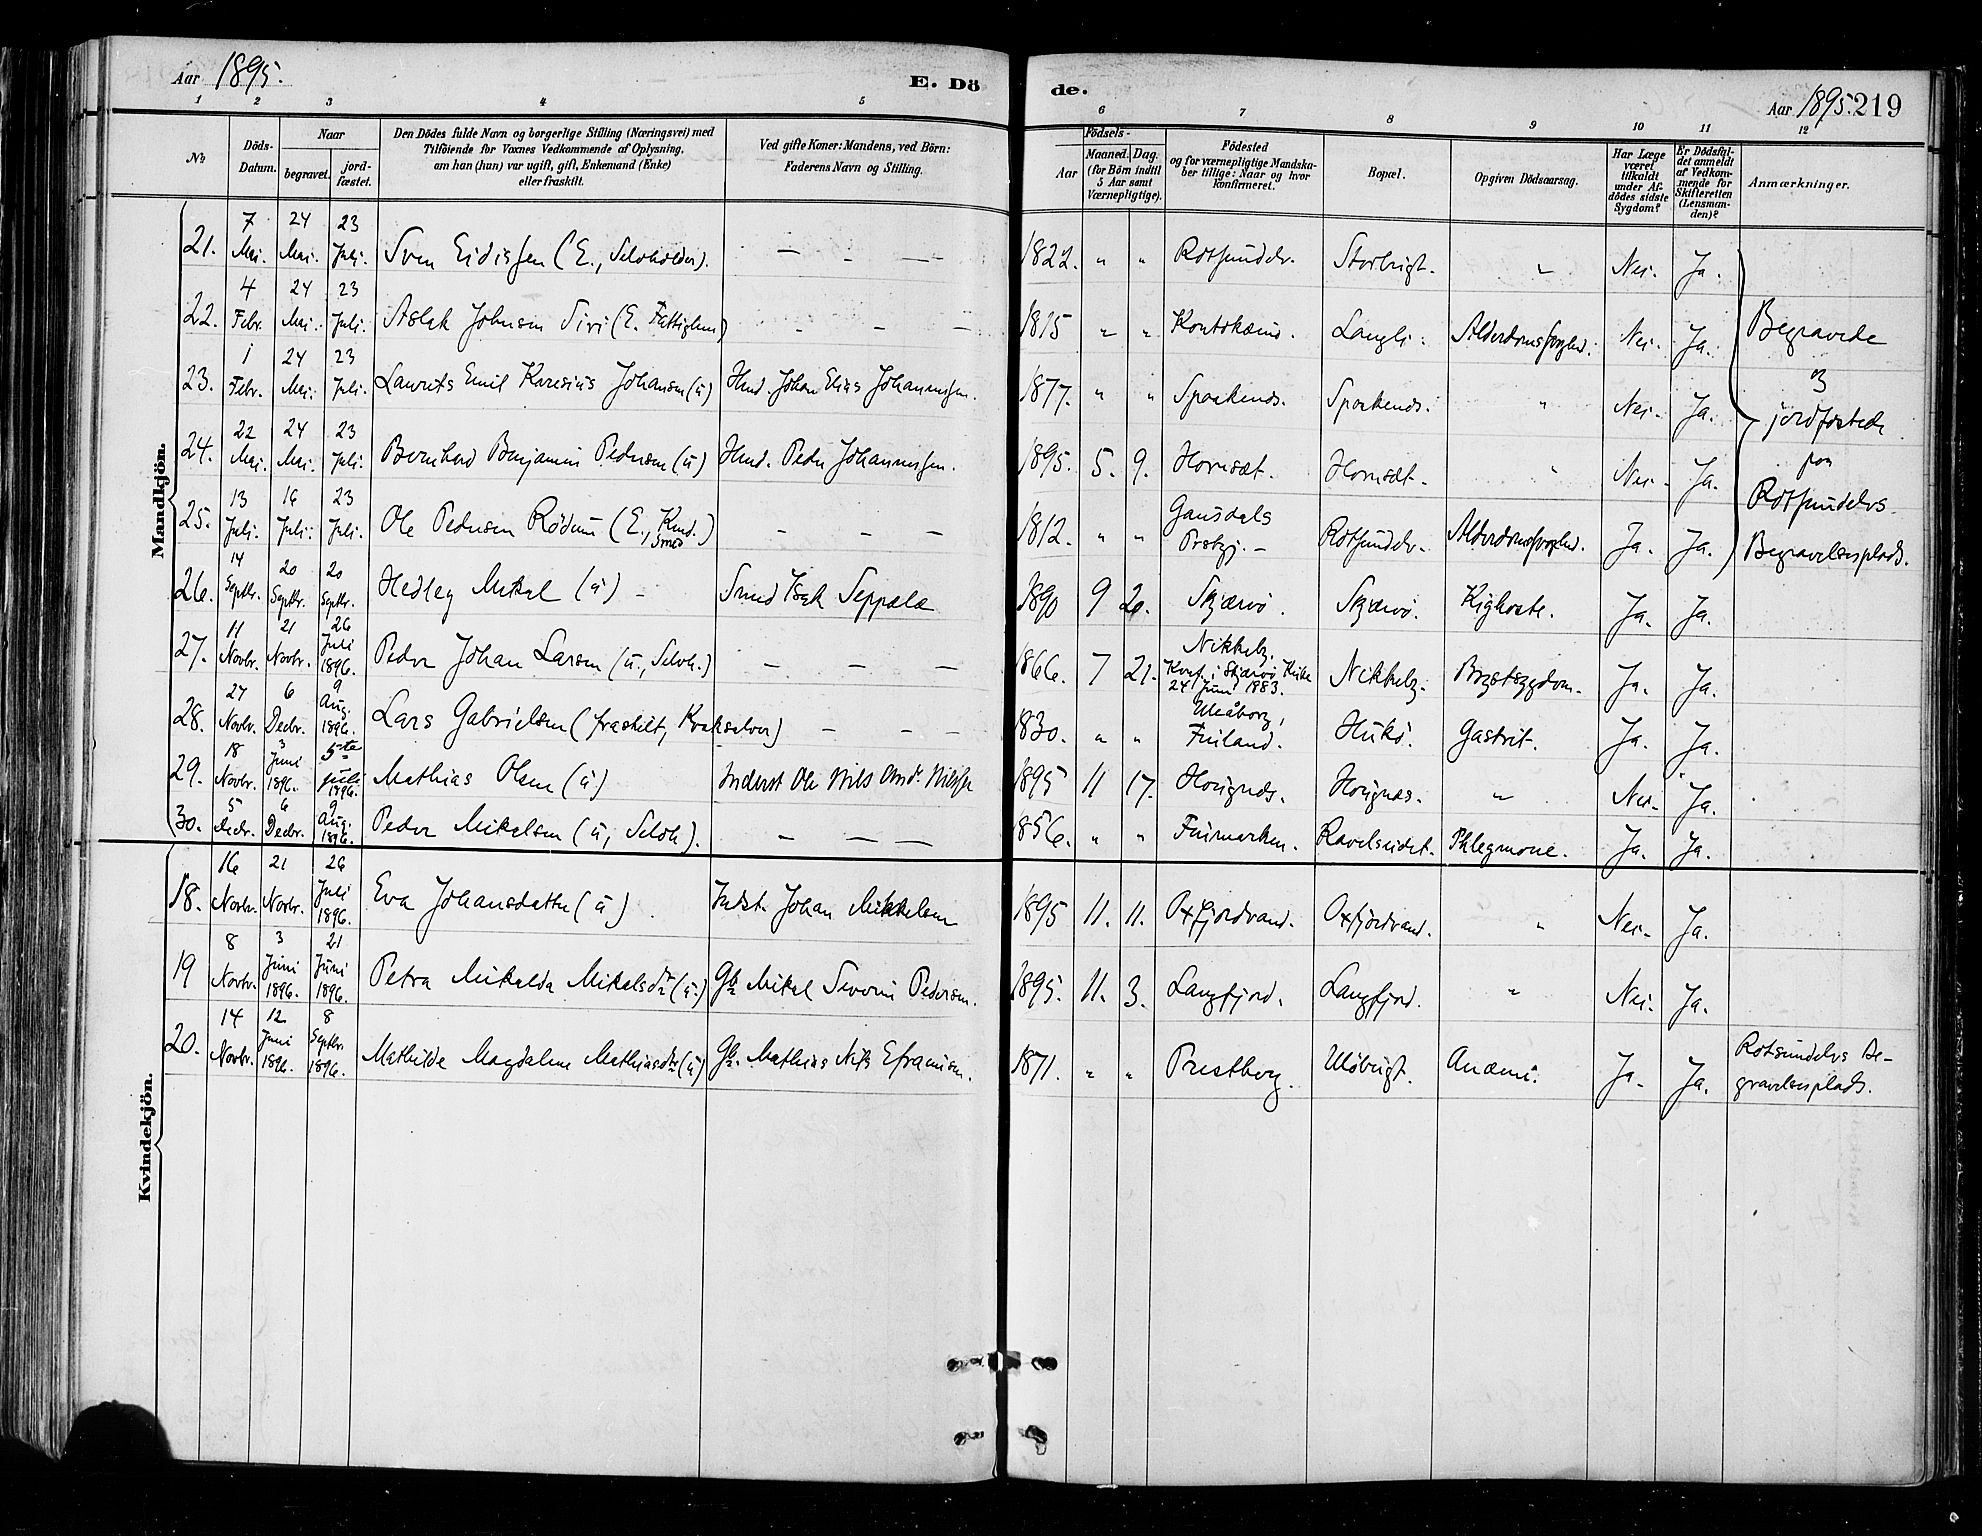 Aar 1895.
E. Dö
de.
Aar 1895. 219
1 2 3 4 5 6 7 8 9 10 11 12
No
Döds-Datum.
Naar
begravet. jordfæstet.
Den Dödes fulde Navn og borgerlige Stilling (Næringsvei) med
Tilföiende for Voxnes Vedkommende af Oplysning,
om han (hun) var ugift, gift, Enkemand (Enke)
eller fraskilt.
Ved gifte Koner: Mandens, ved Börn:
Faderens Navn og Stilling.
Födsels-
Aar Maaned. Dag.
(for Börn indtil
5 Aar samt
Værnepligtige).
Födested
og for værnepligtige Mandska-
ber tillige: Naar og hvor
konfirmeret.
Bopæl.
Opgiven Dödsaarsag.
Har Læge
været
tilkaldt
under Af-
dödes sidste
Sygdom?
Er Dödsfal-
det anmeldt
af Vedkom-
mende for
Skifteretten
(Lensman-
den)?
Anmærkninger.
Mandkjön.
21. 7 Mai. 24 Mai. 23 Juli. Sven Eidissen (E., Selvholder). — - — 1822. " " Rotsundelv. Storbugt. " Nei. Ja.
22. 4 Febr. 24 Mai. 23 Juli. Aslak Johnsen Siri (E. Fattiglem) - — — 1815 " " Kontokeino. Langli. Alderdomssvaghed. Nei. Ja.
23. 1 Febr. 24 Mai. 23 Juli. Laurits Emil Kresius Johansen (u) Hmd. Johan Elias Johannessen. 1877. " " Spaakenæs. Spaakenæs. " Nei. Ja.
24. 22 Mai. 24 Mai. 23 Juli. Bernhard Benjamin Pedersen (u) Hmd. Peder Johannessen. 1895. 5. 9. Hovnsæt. Hovnsæt. " Nei. Ja.
25. 13 Juli. 16 Juli. 23 Juli. Ole Pedersen Rødum (E., Kmd. Smed) — — — 1812. " " Gausdals Prstgj. — Rotsundelv. Alderdomssvaghed. Ja. Ja.
Begravede
&
jordfæstede
paa
Rotsundelvs
Begravelsesplads.
26. 14 Septbr. 20 Septbr. 20 Septbr. Hedley Mikal (u) - Smed Isak Seppälä 1890 9 20. Skjærvö. Skjærvö. Kighoste. Ja. Ja.
27. 11 Novbr. 21 Novbr. 26 Juli 1896. Peder Johan Larsen (u., Selvh.) — — — 1866. 7 21. Nikkelg. Konf. i Skjærvö Kirke 24 Juni 1883. Nikkelg. Brystsygdom. Ja. Ja.
28. 27 Novbr. 6 Decbr. 9 Aug. 1896. Lars Gabrielsen (fraskilt, Kvaksalver) — - — 1830. " " Uleåborg, Finland. Hukö. Gastrit. Ja. Ja.
29. 18 Novbr. 3 Juni 1896. 5te juli 1896. Mathias Olsen (u) Inderst Ole Nils And. Nilssen 1895 11 17. Hovignæs. Hovignæs. " Nei. Ja.
30. 5 Decbr. 6 Decbr. 9 Aug. 1896. Peder Mikalsen (u, Selvh). — — — 1856. " " Finmarken. Ravelseidet. Phlegmone. Ja. Ja.
Kvindekjön.
18. 16 Novbr. 21 Novbr. 26 Juli 1896. Eva Johansdatter (u) Indst. Johan Mikkelsen 1895 11. 11. Oxfjordvand. Oxfjordvand. " Nei. Ja.
19 8 Novbr. 3 Juni 1896. 21 Juni 1896. Petra Mikalda Mikalsdtr (u.) Gbr Mikal Severin Pedersen. 1895. 11. 3. Langfjord. Langfjord. " Nei. Ja.
20. 14 Novbr. 12 Juni 1896. 8 Septbr. 1896. Mathilde Magdalene Mathiasdtr (u) Gbr. Mathias Nils Efraimsen. 1871. " " Prestberg. Uløbugt. Anæmi. Ja. Ja. Rotsundelvs Be-
gravelsesplads.